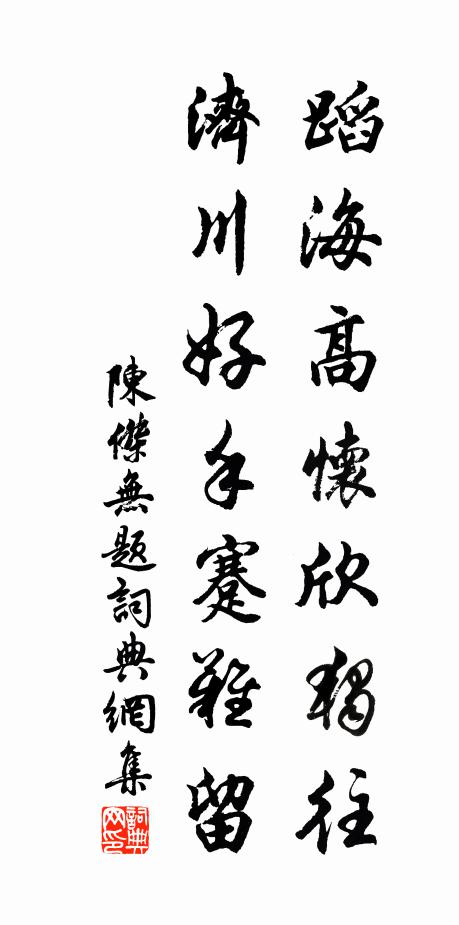 蹈海高懷欣獨往
濟川好手蹇難留
陳傑無題詞典網集
詞典網印